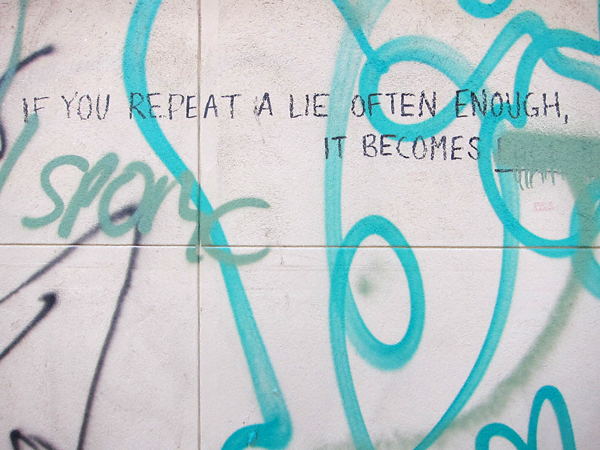 IF YOU REPEAT A LIE OFTEN ENOUGH,
IT BECOMES
SPORC